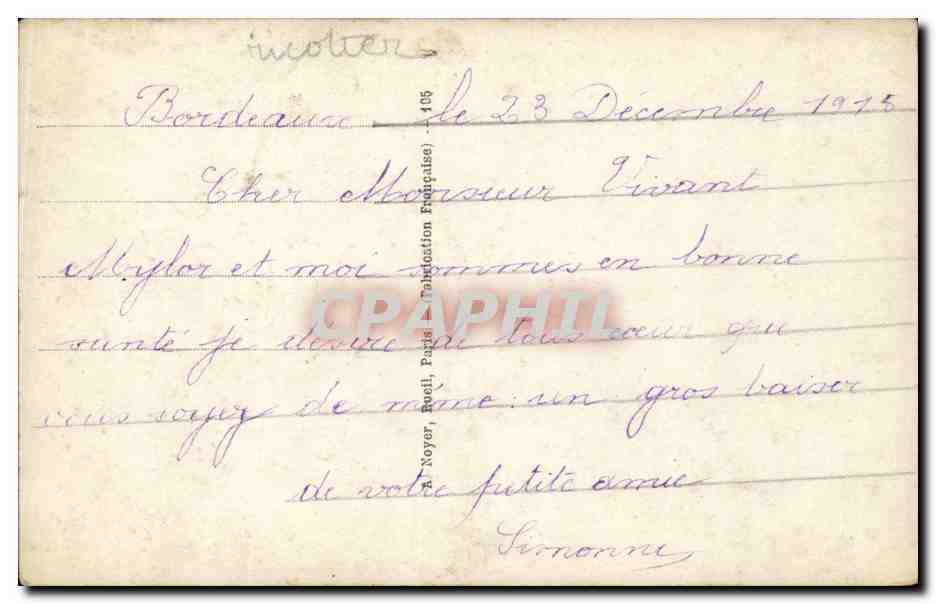 Bordeaux le 23 Décembre 1915
Cher Monsieur Vivant
Mylor et moi sommes en bonne
sunté je désire de tous cœur que
vous soyez de même un gros baiser
de votre petite amie
Simonne
A Noyer, Rueil, Paris (Fabrication Française) — 105
CPAPHIL